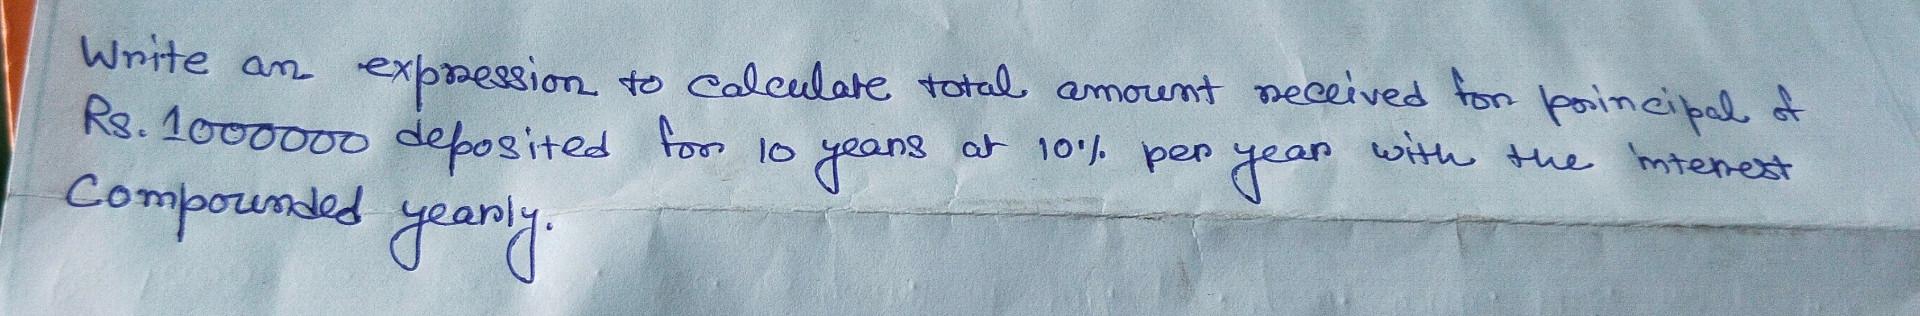 Write an expression to calculate total amount received for principal of
Rs. 1000000 deposited for 10 years at 10% per year with the interest
Compounded yearly.